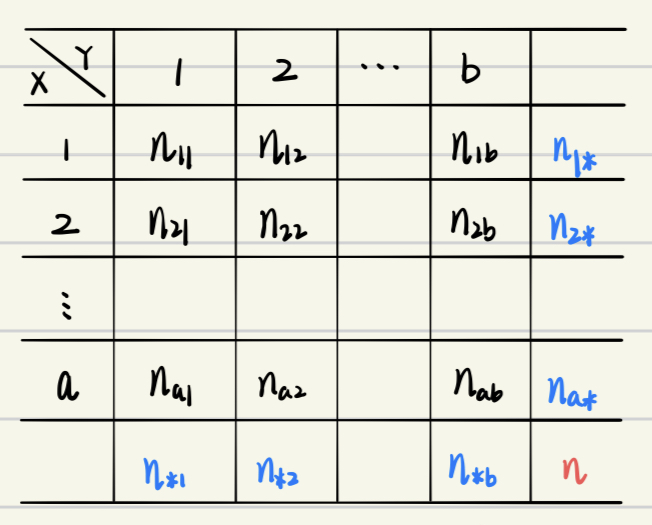 X Y 1 2 ... b
1 n₁₁ n₁₂ n₁b n₁*
2 n₂₁ n₂₂ n₂b n₂*
⋮
a nₐ₁ nₐ₂ nₐb nₐ*
n*₁ n*₂ n*b n